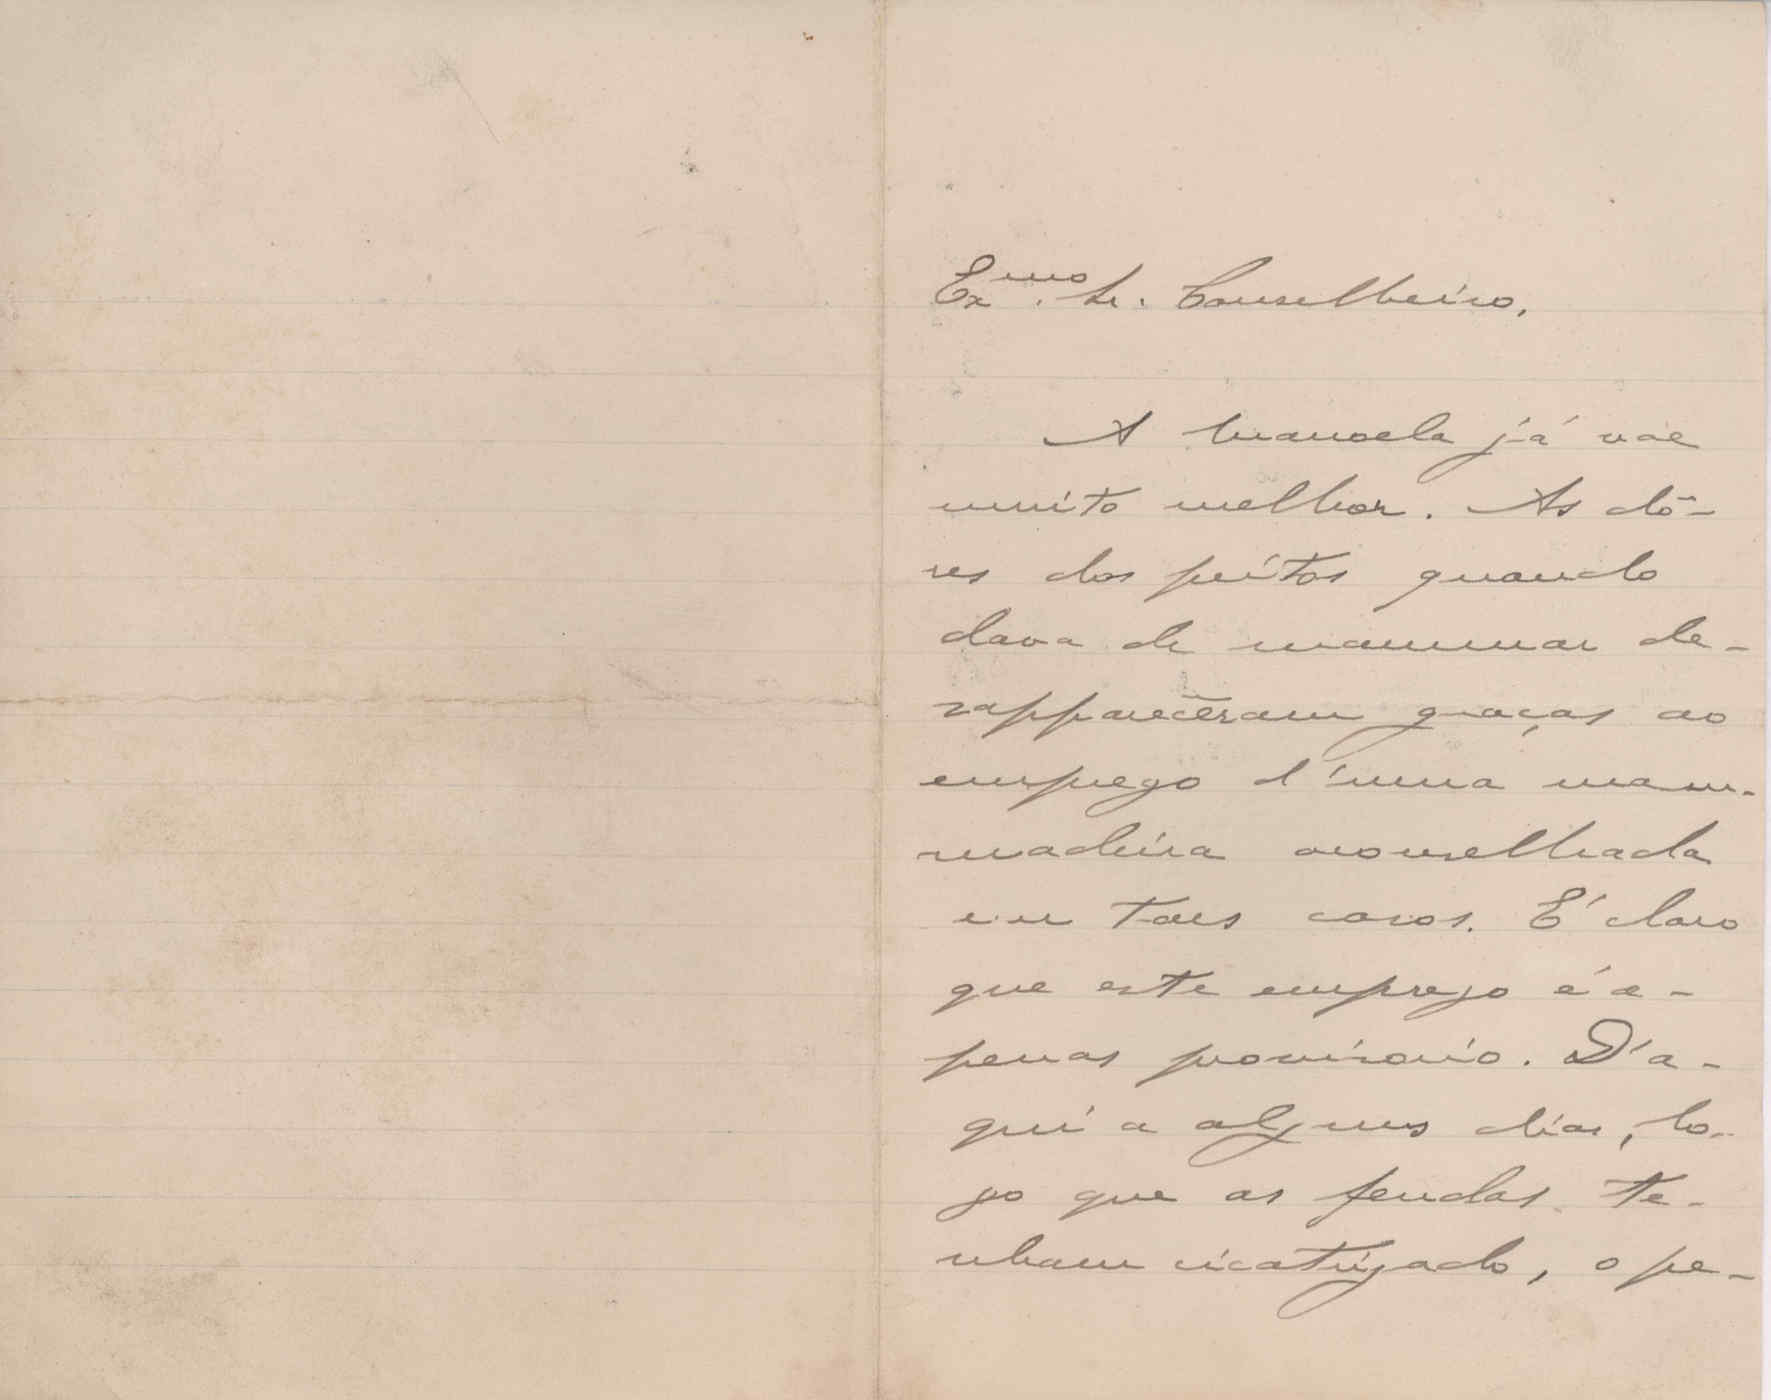 Exmo. Sr. Conselheiro,
A Manoela já vae
muito melhor. As dô-
res dos peitos quando
dava de mammar de-
sappareceram graças ao
emprego d'uma mam-
madeira aconselhada
em taes casos. É claro
que este emprego é a-
penas provisorio. D'a-
qui a alguns dias, lo-
go que as fendas te-
nham cicatrizado, o pe-